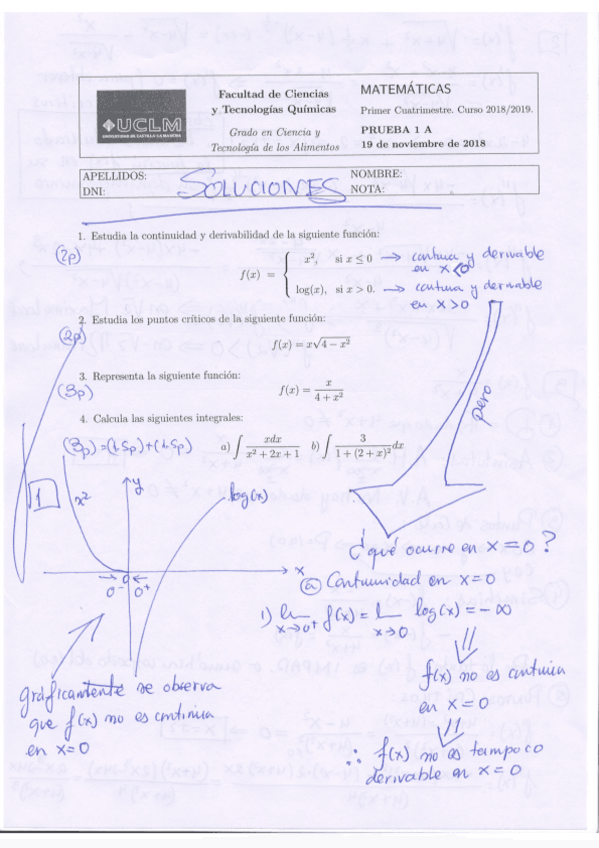 UCLM
UNIVERSIDAD DE CASTILLA-LA MANCHA
Facultad de Ciencias
y Tecnologías Químicas
Grado en Ciencia y
Tecnología de los Alimentos
MATEMÁTICAS
Primer Cuatrimestre. Curso 2018/2019.
PRUEBA 1 A
19 de noviembre de 2018
APELLIDOS:
DNI:
SOLUCIONES
NOMBRE:
NOTA:
1. Estudia la continuidad y derivabilidad de la siguiente función:
(2p)
f(x) = { x², si x ≤ 0 → continua y derivable en x<0
log(x), si x > 0. → continua y derivable en x>0
2. Estudia los puntos críticos de la siguiente función:
(2p)
f(x) = x√(4 − x²)
3. Representa la siguiente función:
(3p)
f(x) = x/(4 + x²)
4. Calcula las siguientes integrales:
(3p)=(1.5p)+(1.5p)
a) ∫ xdx/(x² + 2x + 1) b) ∫ 3/(1 + (2 + x)²) dx
pero
1
x²
y
log(x)
x
0
0⁻ 0⁺
gráficamente se observa
que f(x) no es continua
en x=0
¿qué ocurre en x=0?
ⓐ Continuidad en x=0
1) lim x→0⁺ f(x) = lim x→0 log(x) = −∞
f(x) no es continua
en x=0
∴ f(x) no es tampoco
derivable en x=0